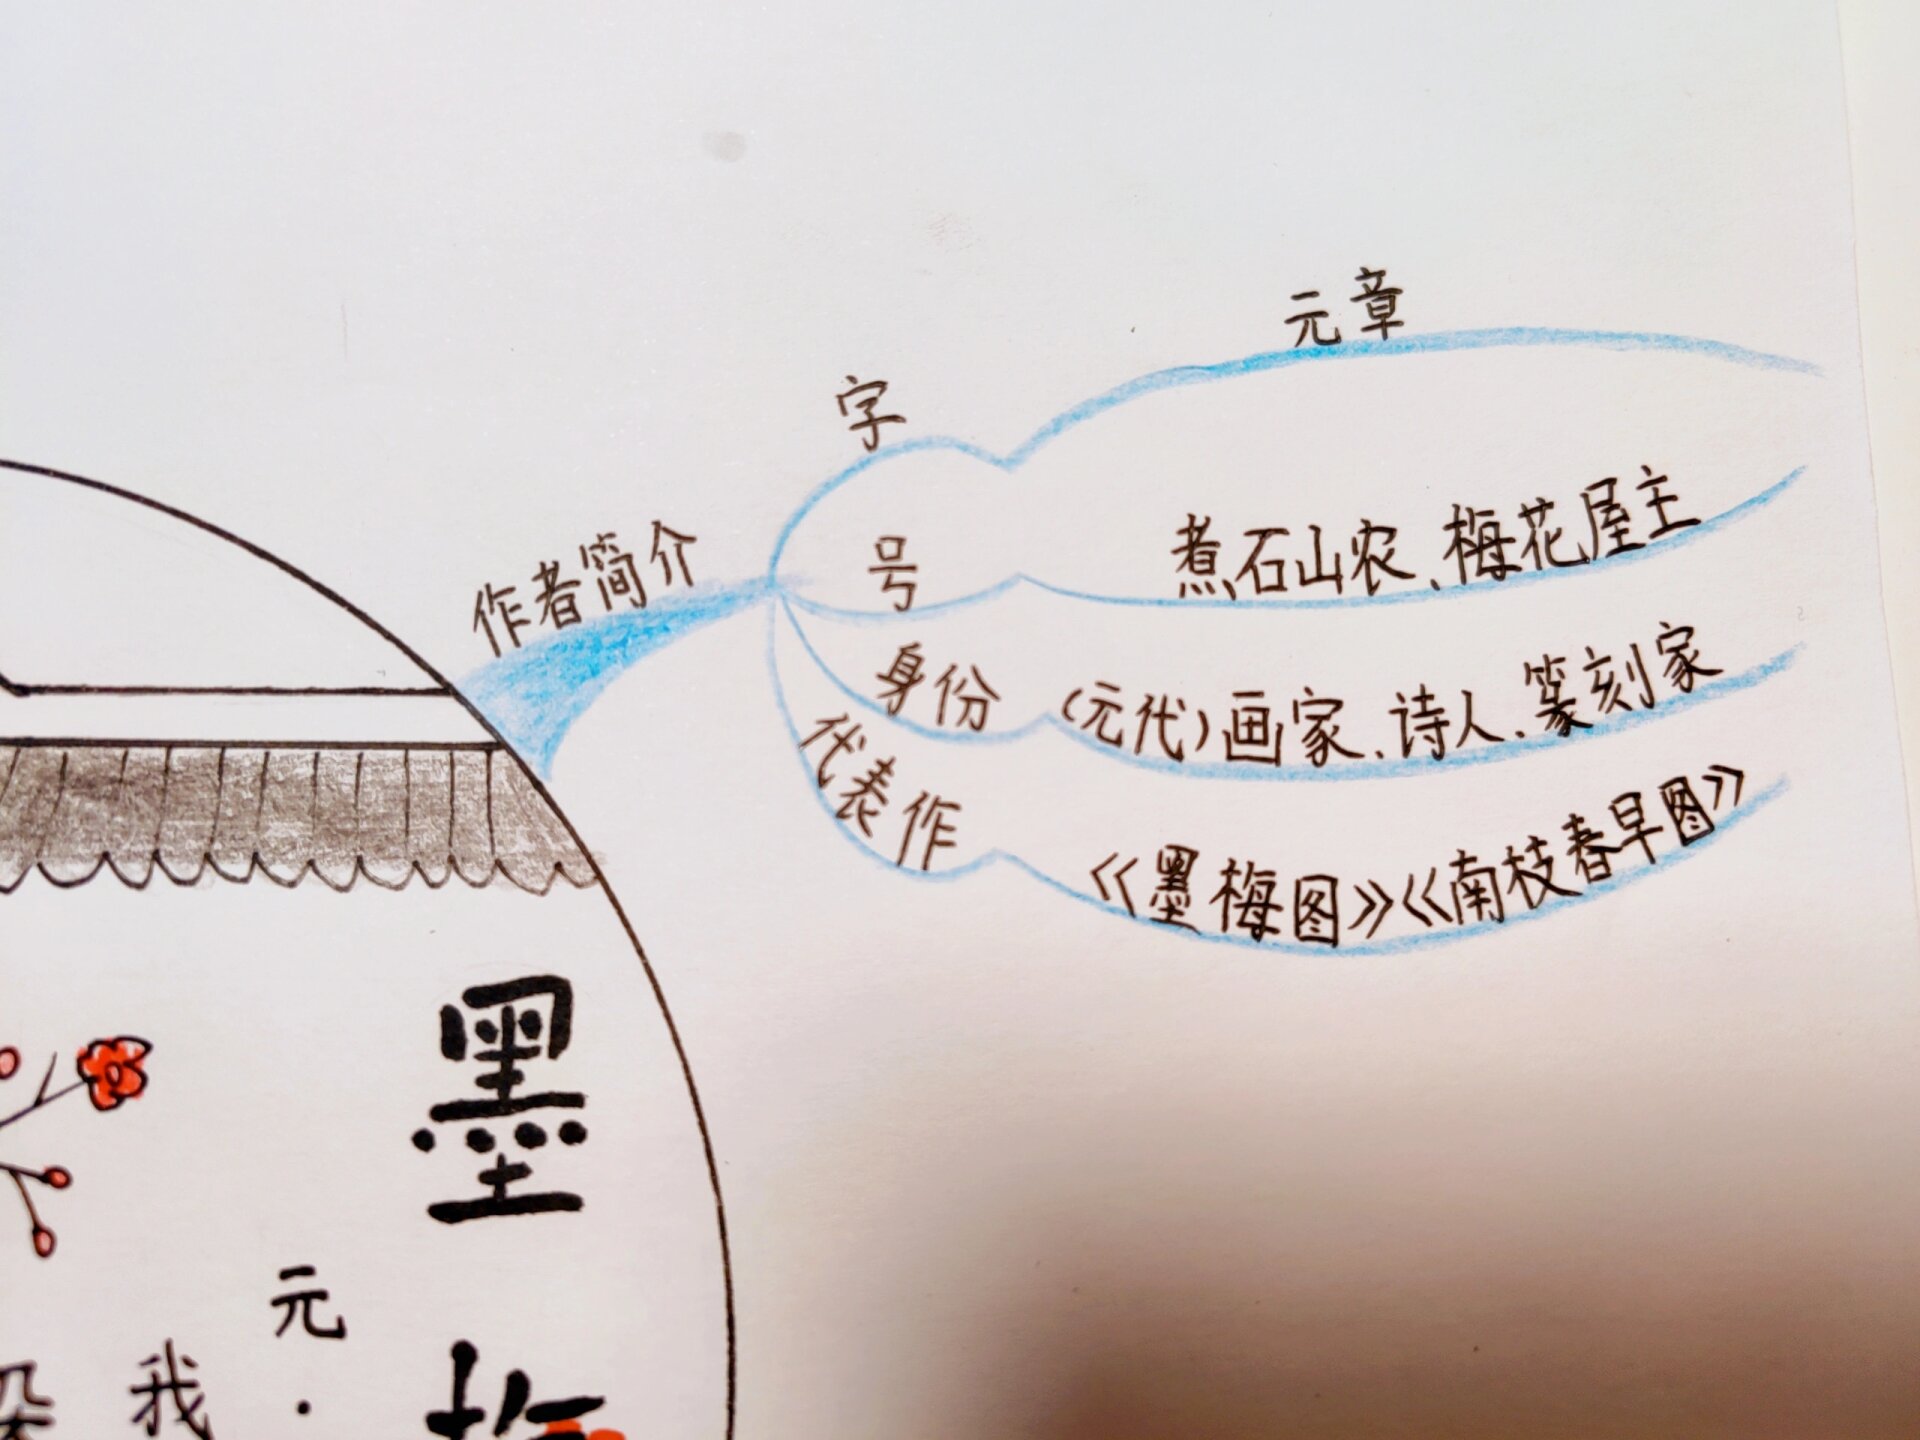 作者简介
字 元章
号 煮石山农、梅花屋主
身份 (元代)画家、诗人、篆刻家
代表作 《墨梅图》《南枝春早图》
墨梅
元·
我
朵